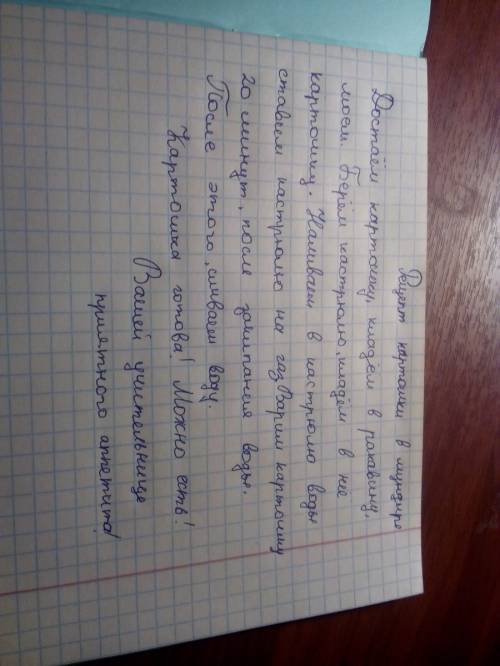 Рецепт картошки в мундире
Достаём картошку, кладём в раковину,
моем. Берём кастрюлю, кладём в неё
картошку. Наливаем в кастрюлю воды
ставим кастрюлю на газ. Варим картошку
20 минут, после закипания воды.
После этого, сливаем воду.
Картошка готова! Можно есть!
Вашей учительнице
приятного аппетита!